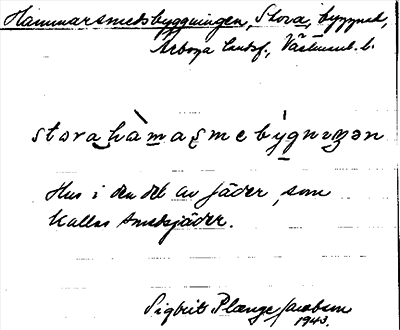 Hammarsmedsbyggningen, Stora, byggnad,
Arboga landsf., Västmanl. l.
stora hàmaṣmebỳgnıŋən
Hus i den del av Jäder, som
kallas Smedsjäder.
Sigbrit Plænge Jacobson
1943.